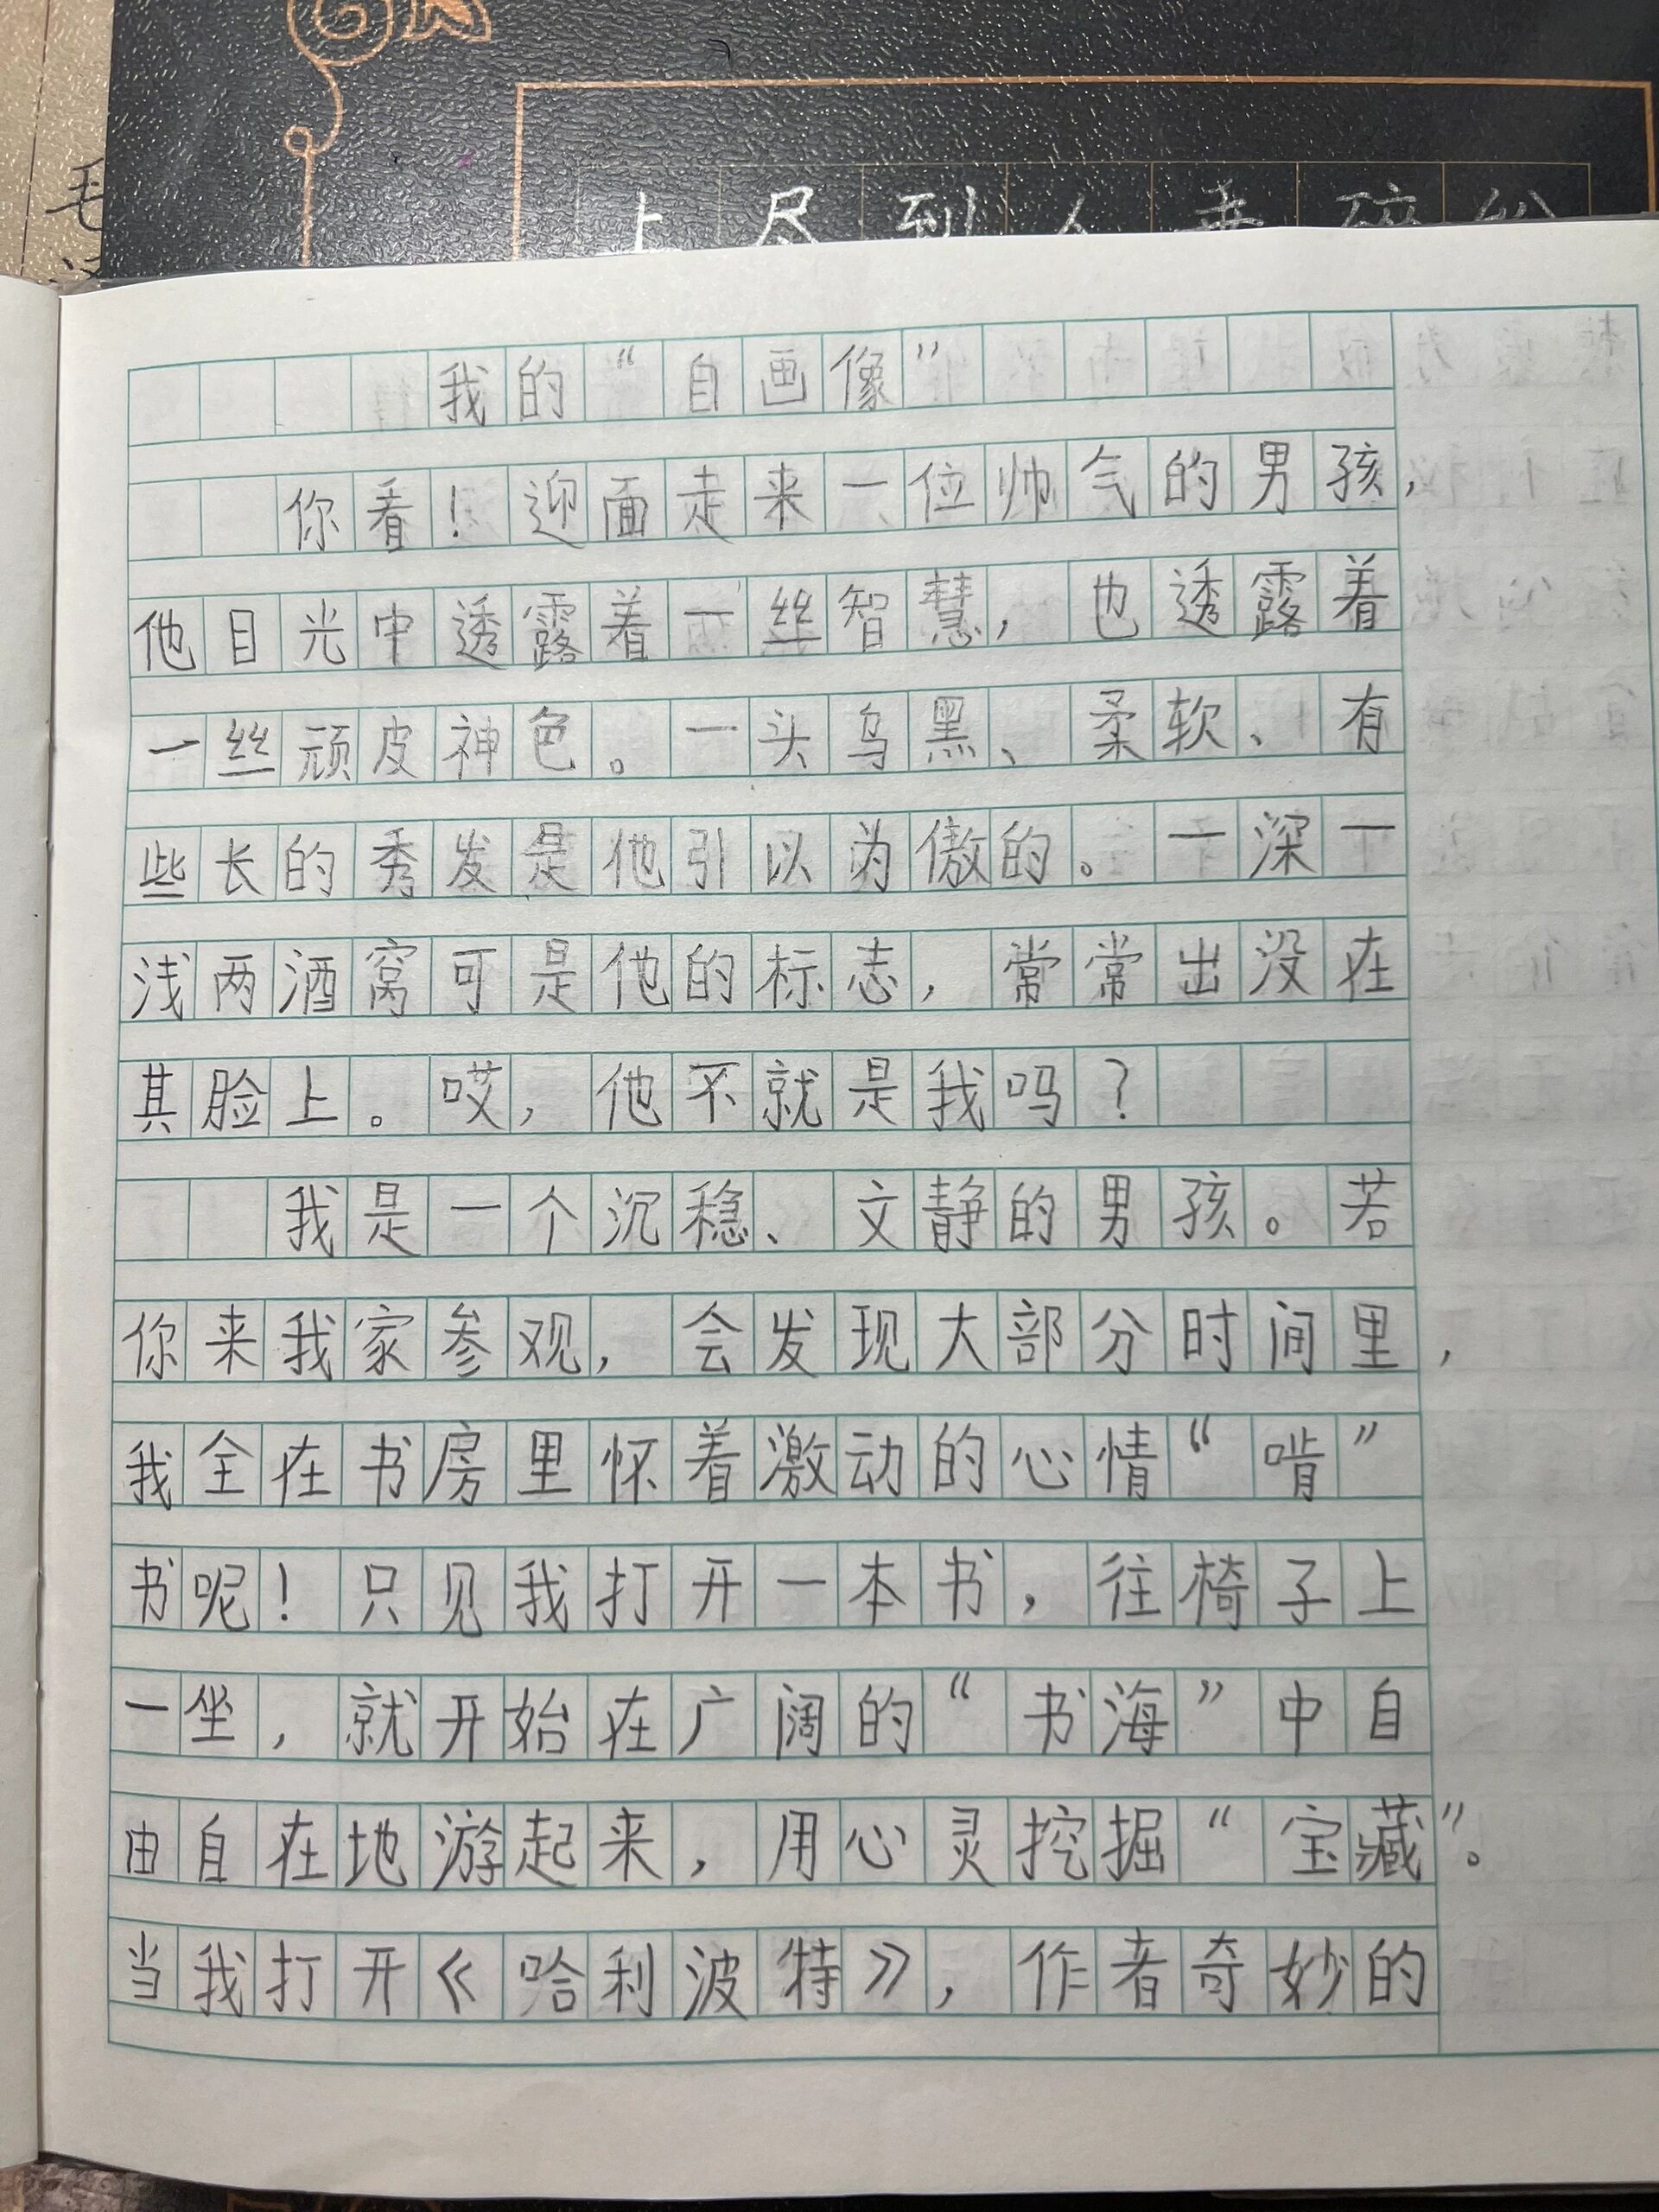 毛
上尽到人垂碎纷
我的“自画像”
你看！迎面走来一位帅气的男孩，
他目光中透露着一丝智慧，也透露着
一丝顽皮神色。一头乌黑、柔软、有
些长的秀发是他引以为傲的。一深一
浅两酒窝可是他的标志，常常出没在
其脸上。哎，他不就是我吗？
我是一个沉稳、文静的男孩。若
你来我家参观，会发现大部分时间里，
我全在书房里怀着激动的心情“啃”
书呢！只见我打开一本书，往椅子上
一坐，就开始在广阔的“书海”中自
由自在地游起来，用心灵挖掘“宝藏”。
当我打开《哈利波特》，作者奇妙的